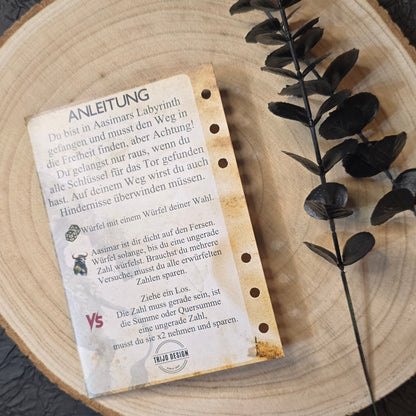 ANLEITUNG
Du bist in Aasimars Labyrinth
gefangen und musst den Weg in
die Freiheit finden, aber Achtung!
Du gelangst nur raus, wenn du
alle Schlüssel für das Tor gefunden
hast. Auf deinem Weg wirst du auch
Hindernisse überwinden müssen.
Würfel mit einem Würfel deiner Wahl.
Aasimar ist dir dicht auf den Fersen.
Würfel solange, bis du eine ungerade
Zahl würfelst. Brauchst du mehrere
Versuche, musst du alle erwürfelten
Zahlen sparen.
Ziehe ein Los.
VS
Die Zahl muss gerade sein, ist
die Summe oder Quersumme
eine ungerade Zahl,
musst du sie x2 nehmen und sparen.
THIJO DESIGN